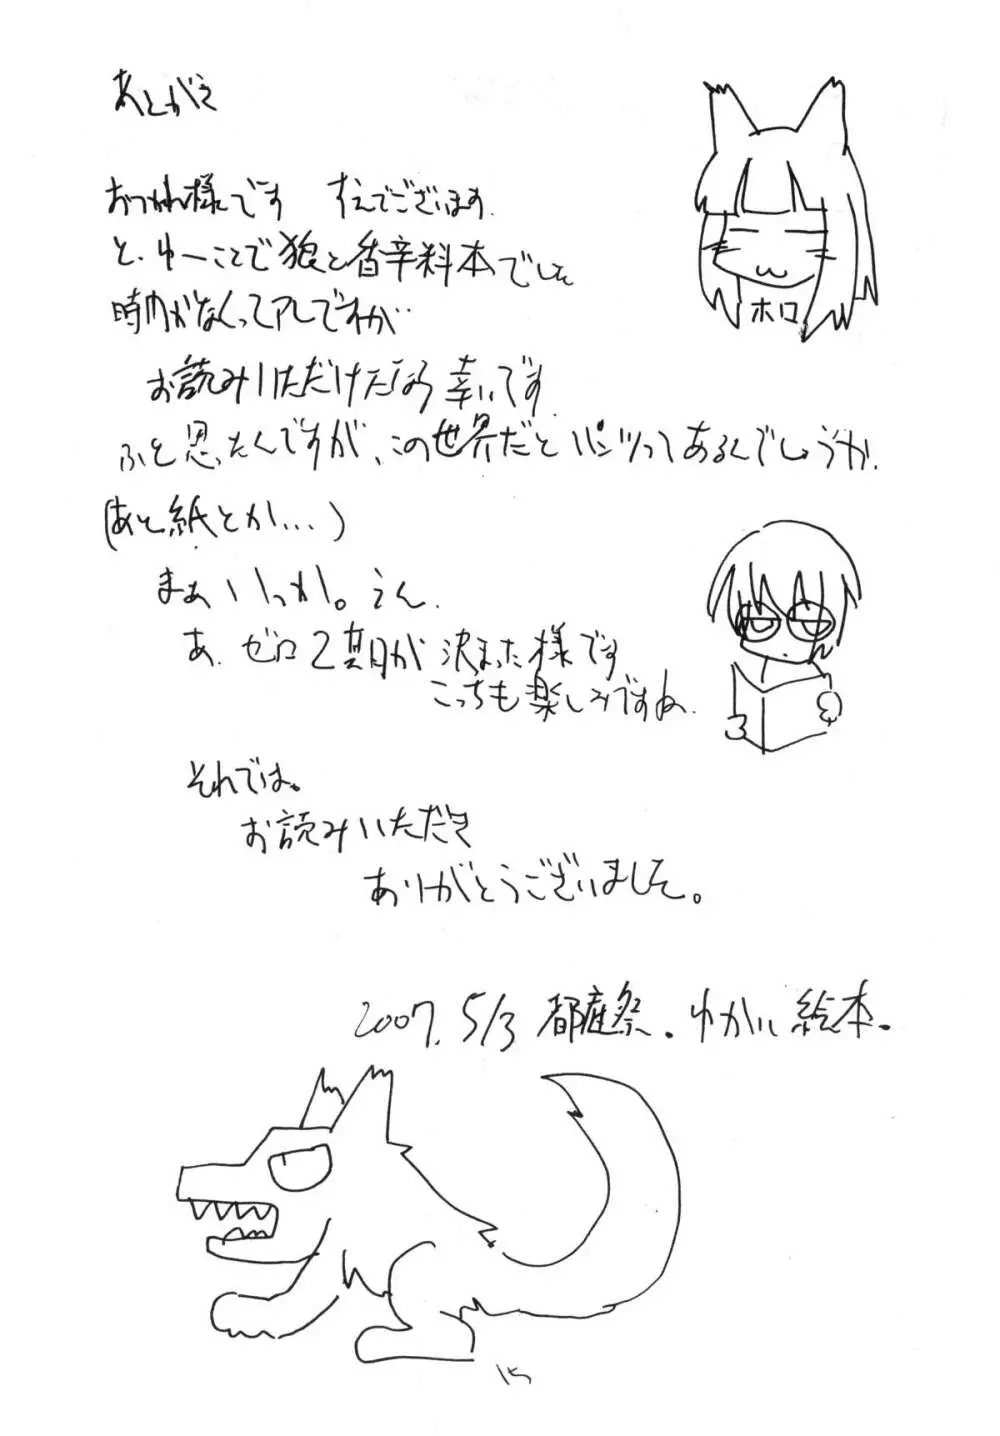 あとがき
おつかれ様です すえでございます。
と、ゆーことで狼と香辛料本でした
時間がなくってアレですが…
お読みいただけたなら幸いです
ふと思ったんですが、この世界だとパンツってあるんでしょうか。
(あと紙とか…)
まぁいっか。うん。
あ、ゼロ2期が決まった様です
こっちも楽しみですね。
それでは。
お読みいただき
ありがとうございました。
2007. 5/3 都庭祭。ゆかいに絵本。
ホロ
15